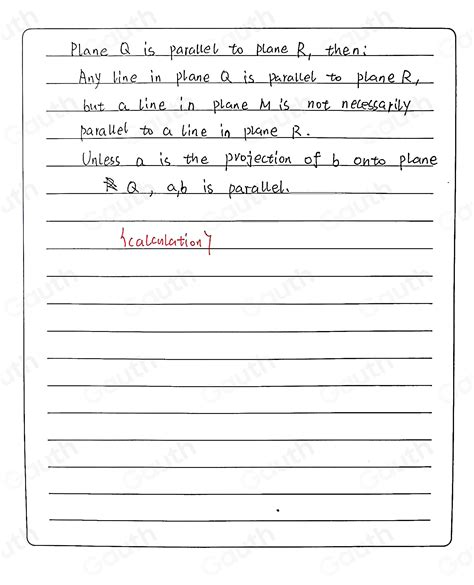 Plane Q is parallel to plane R, then:
Any line in plane Q is parallel to plane R,
but a line in plane M is not necessarily
parallel to a line in plane R.
Unless a is the projection of b onto plane
Q, a,b is parallel.
{calculation}